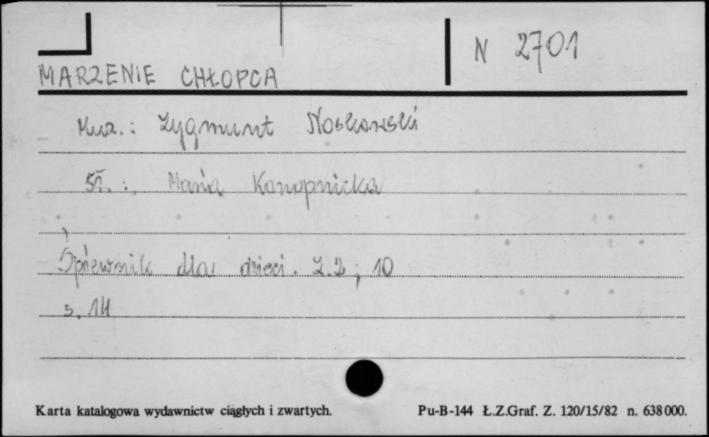 N 2701
MARZENIE CHŁOPCA
Muz.: Zygmunt Noskowski
Sł.: Maria Konopnicka
Śpiewnik dla dzieci. Z.2; 10
s. 14
Karta katalogowa wydawnictw ciągłych i zwartych. Pu-B-144 Ł.Z.Graf. Z. 120/15/82 n. 638000.